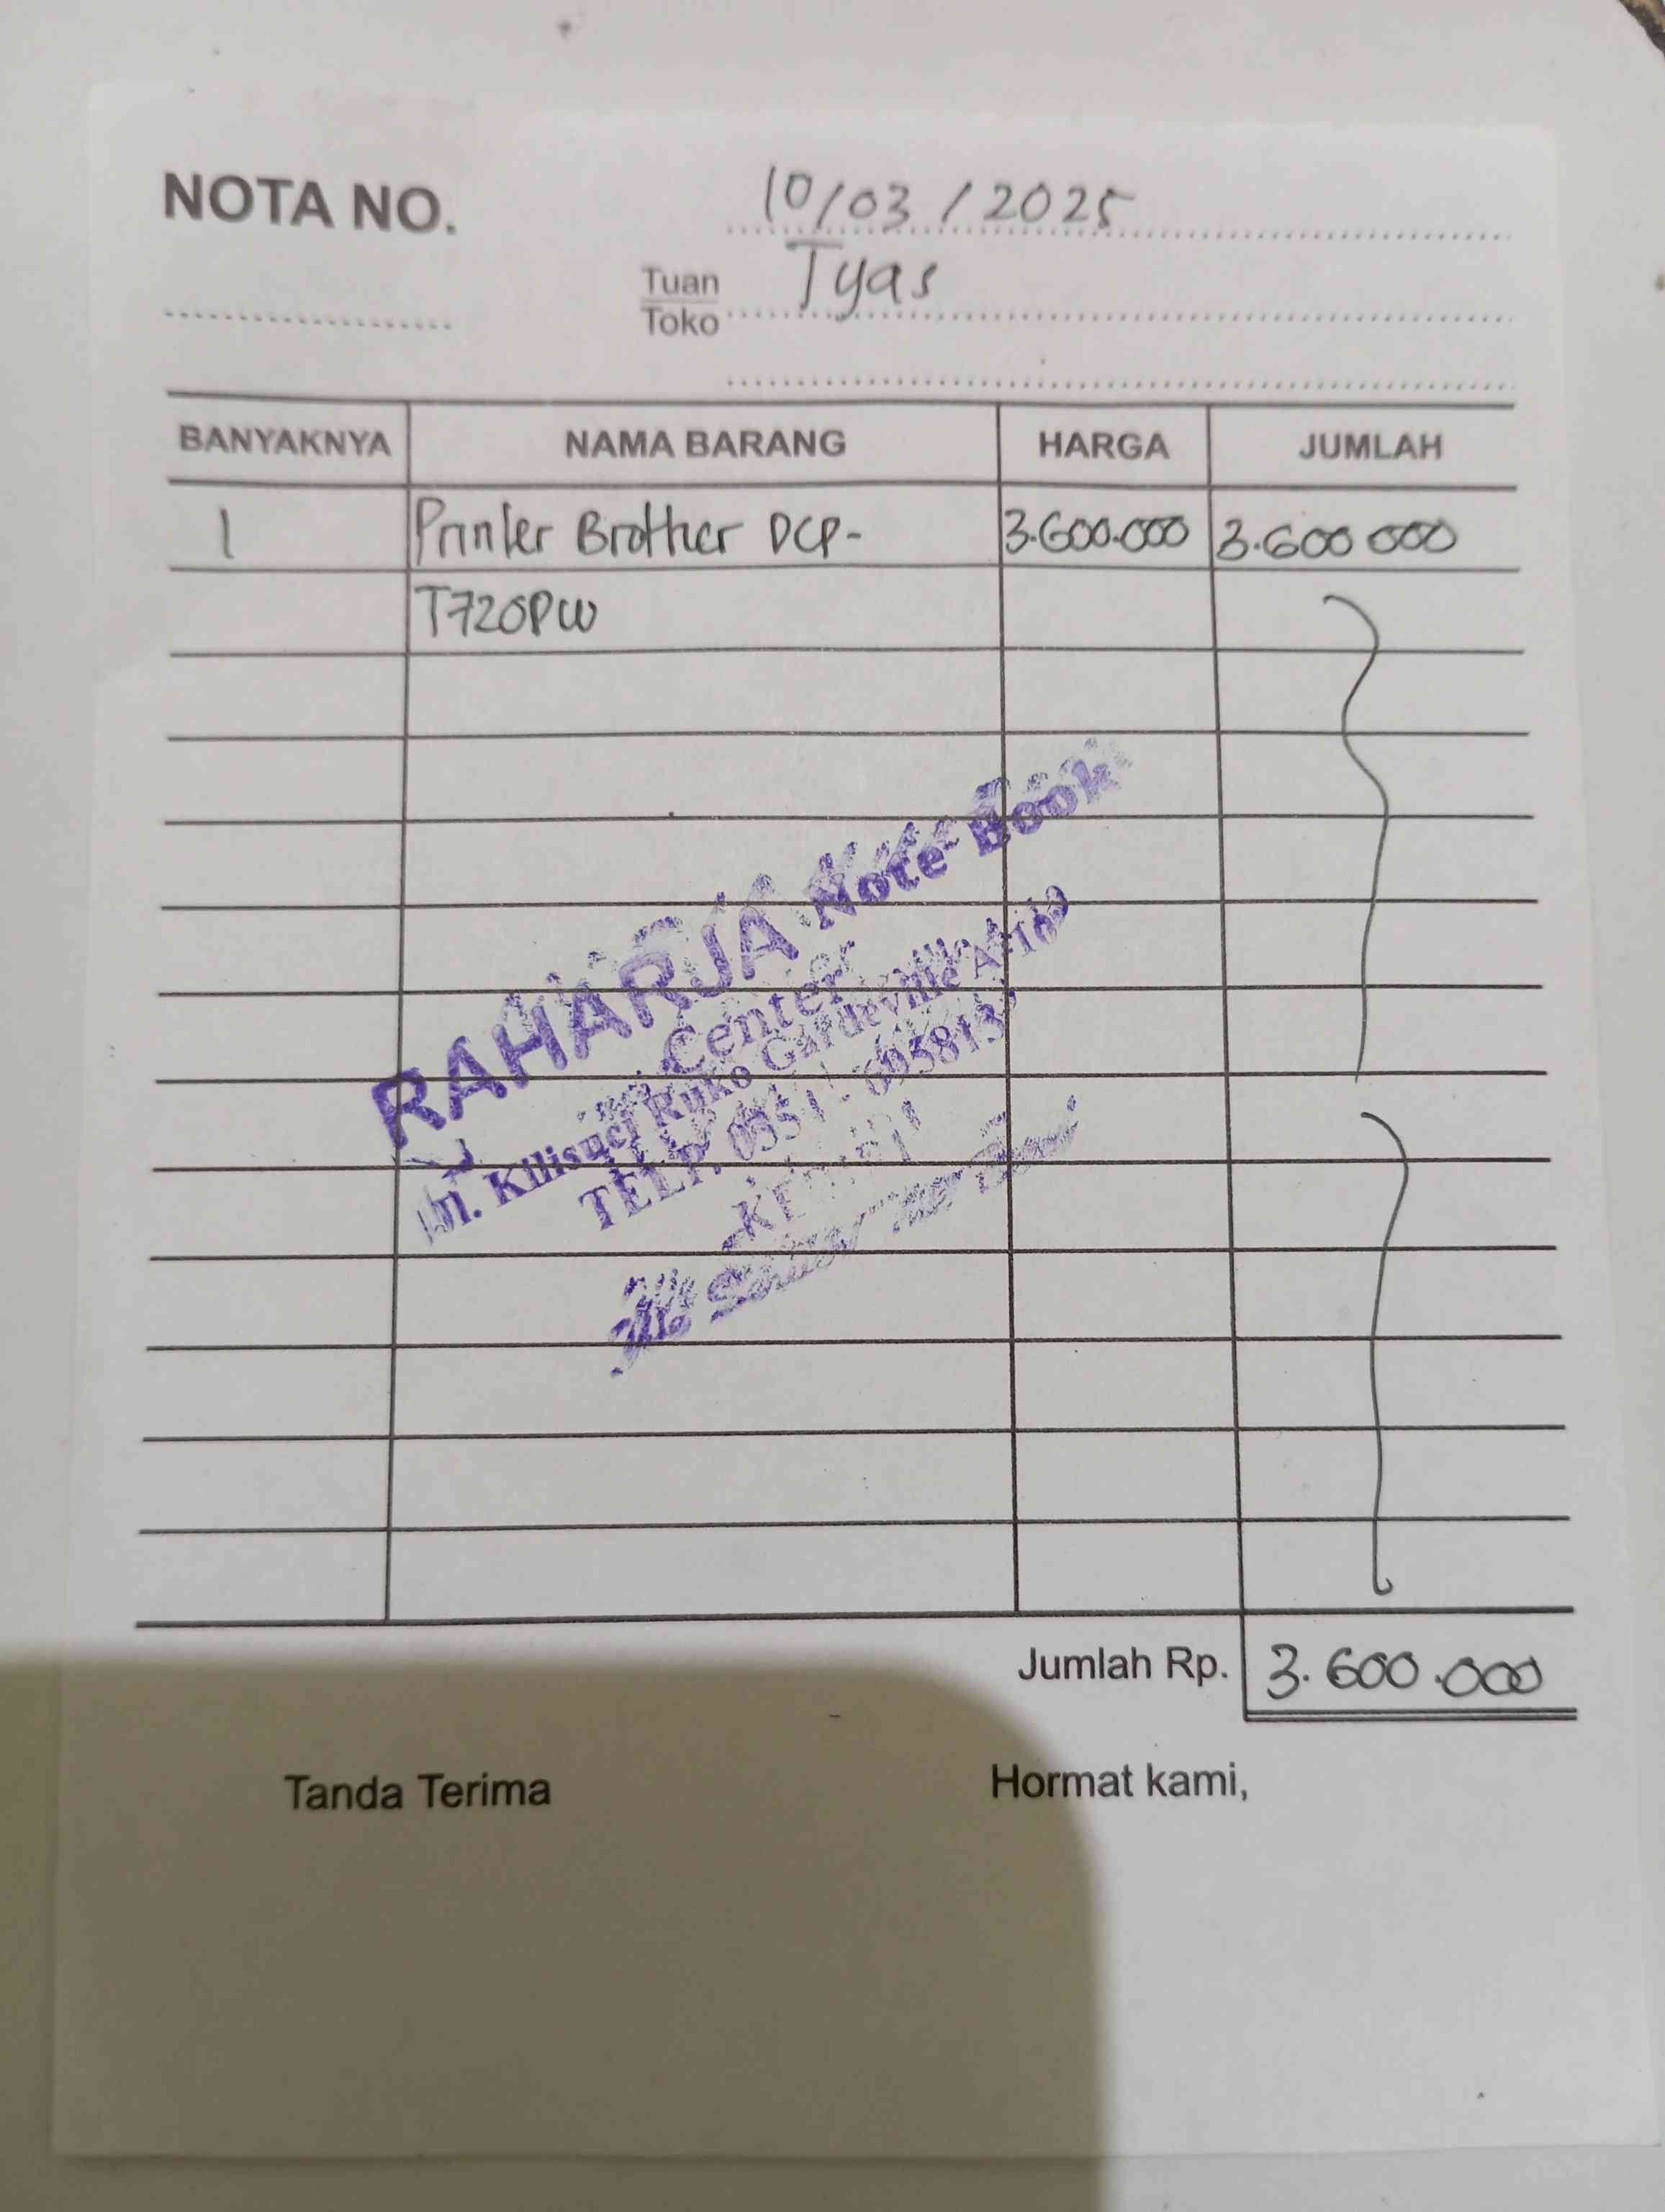 NOTA NO.
10/03/2025
Tuan
Toko
Tyas
BANYAKNYA NAMA BARANG HARGA JUMLAH
1 Printer Brother DCP- 3.600.000 3.600 000
T720PW
RAHARJA Note Book
Center
Jln. Kilisuci Ruko Gardeville
TELP.
KEDIRI
Jumlah Rp. 3.600.000
Tanda Terima Hormat kami,